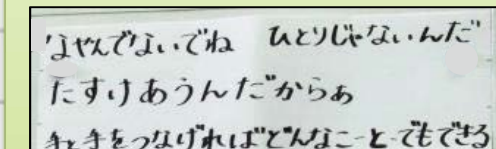 なやんでないでね ひとりじゃないんだ
たすけあうんだからぁ
手と手をつなげればどんなこーとでもできる